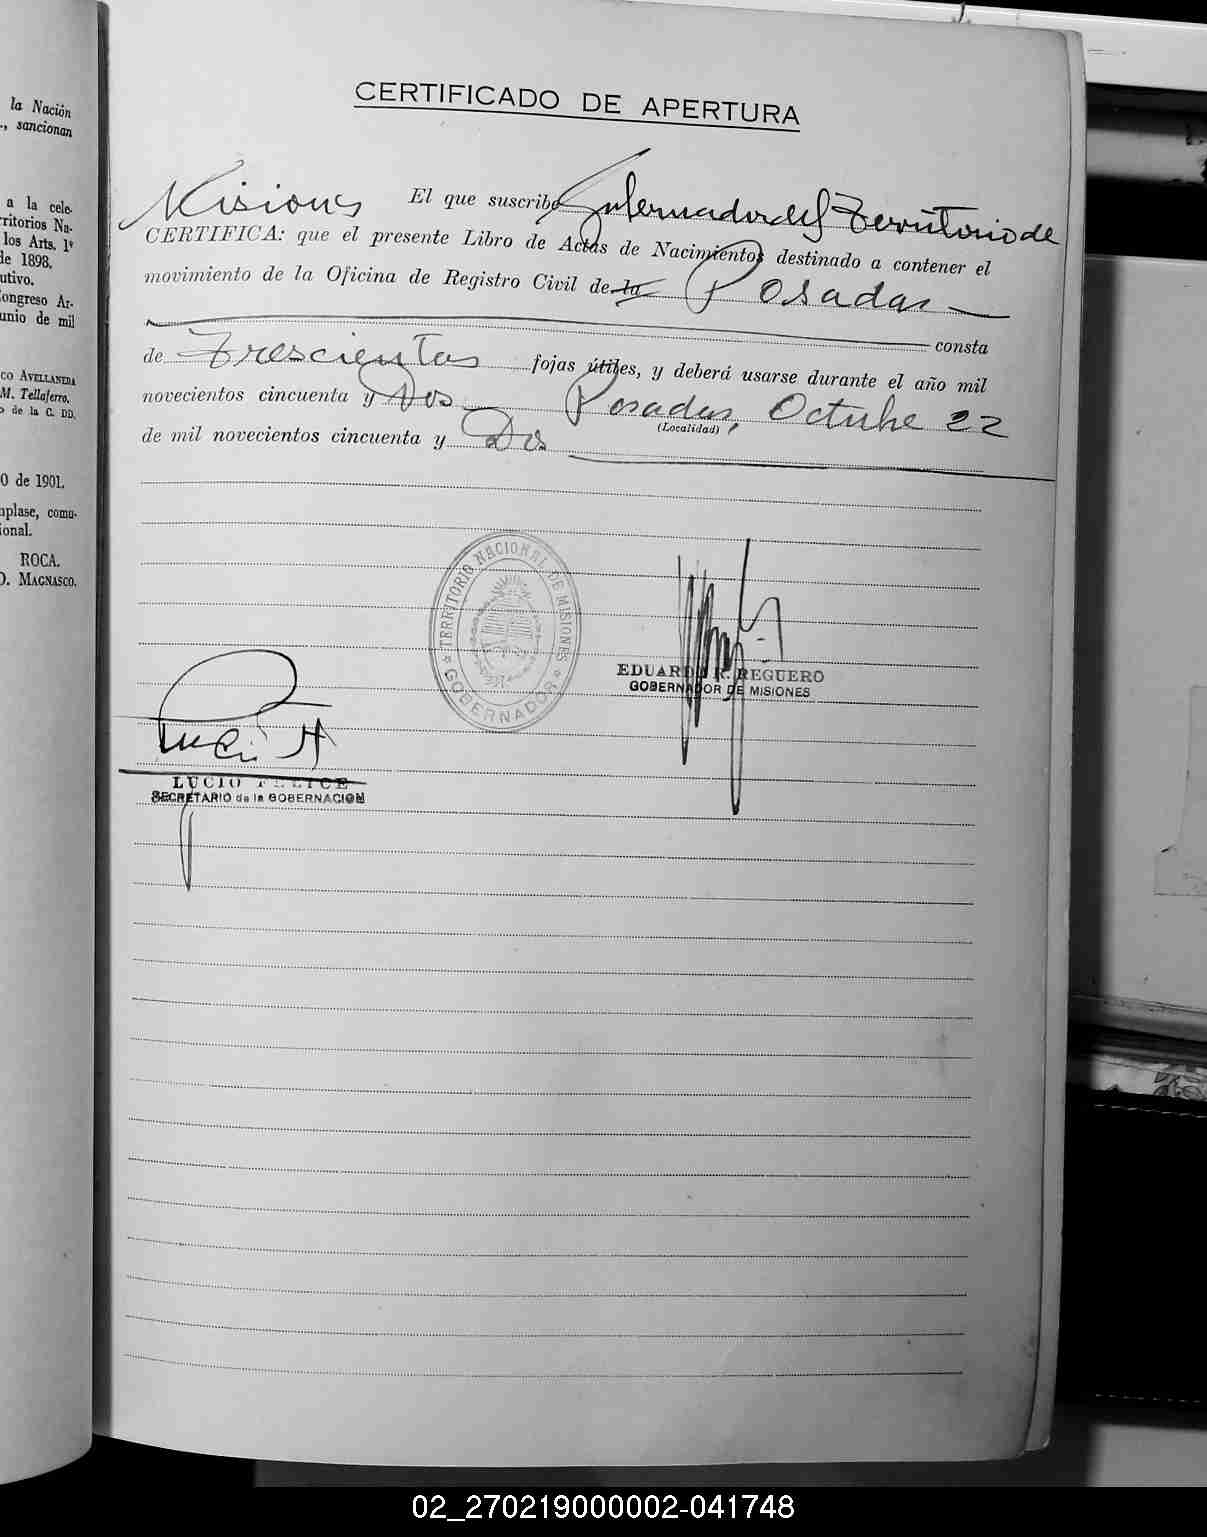 la Nación
., sancionan
a la cele-
rritorios Na-
los Arts. 1º
de 1898.
utivo.
ongreso Ar-
unio de mil
co AVELLANEDA
M. Tellaferro.
o de la C. DD.
0 de 1901.
nplase, comu-
ional.
ROCA.
O. MAGNASCO.
CERTIFICADO DE APERTURA
El que suscribe Gobernador del Territorio de
Misiones
CERTIFICA: que el presente Libro de Actas de Nacimientos destinado a contener el
movimiento de la Oficina de Registro Civil de la Posadas
consta
de Trescientas fojas útiles, y deberá usarse durante el año mil
novecientos cincuenta y Dos Posadas, Octubre 22
(Localidad)
de mil novecientos cincuenta y Dos
TERRITORIO NACIONAL DE MISIONES
GOBERNADOR
EDUARDO R. REGUERO
GOBERNADOR DE MISIONES
LUCIO FELICE
SECRETARIO de la GOBERNACION
02_270219000002-041748